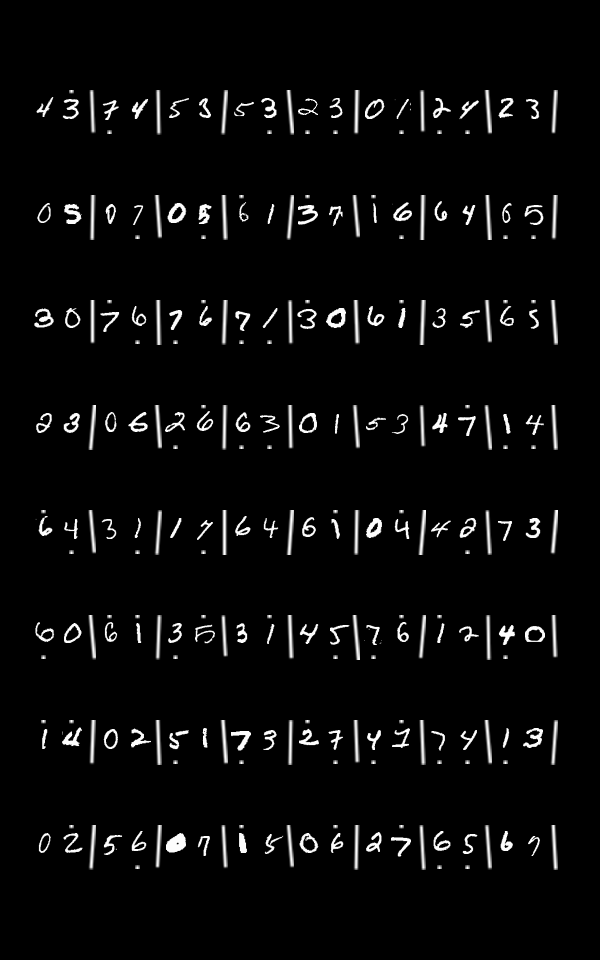 4 3̇ | 7̣ 4 | 5 3 | 5 3̣ | 2̣ 3̣ | 0 1̣ | 2̣ 4̣ | 2 3 |
0 5 | 0 7̣ | 0 5̣ | 6̇ 1 | 3̇ 7 | 1̇ 6̣ | 6 4 | 6̣ 5̣ |
3 0 | 7̇ 6̣ | 7̣ 6̇ | 7̣ 1̣ | 3̇ 0 | 6 1̇ | 3 5 | 6̇ 5̇ |
2 3 | 0 6 | 2̣ 6̇ | 6̣ 3̣ | 0 1 | 5 3 | 4 7̇ | 1̣ 4̣ |
6̇ 4̣ | 3 1̣ | 1 7̣ | 6 4 | 6 1̇ | 0 4̇ | 4 2̣ | 7 3 |
6̣ 0 | 6̇ 1̇ | 3̣ 5̇ | 3 1̇ | 4 5̣ | 7̣ 6̇ | 1̇ 2 | 4̣ 0 |
1̇ 4̇ | 0 2 | 5̣ 1 | 7̣ 3 | 2̇ 7̣ | 4̣ 1̇ | 7 4̣ | 1̣ 3̇ |
0 2̇ | 5 6̣ | 0 7 | 1̇ 5 | 0 6̇ | 2 7̇ | 6̣ 5̣ | 6̇ 7 |